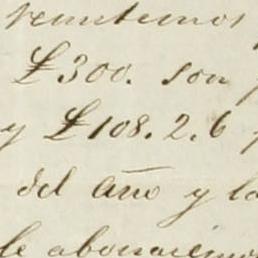 remitimos
£300. son
y £108.2.6
del año y la
le abonaremos